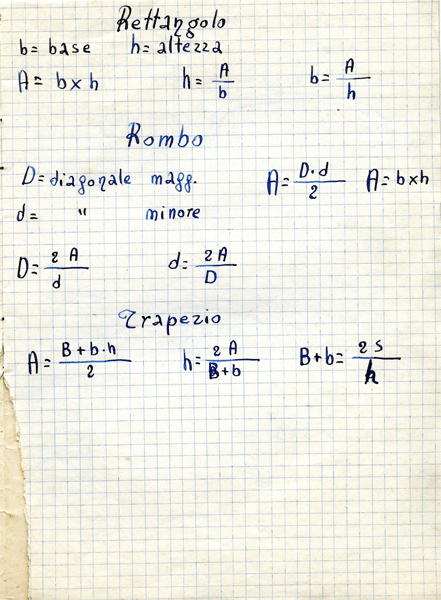 Rettangolo
b = base h = altezza
A = b x h h = A/b b = A/h
Rombo
D = diagonale magg. A = D·d/2 A = b x h
d = " minore
D = 2 A/d d = 2 A/D
Trapezio
A = B + b · h/2 h = 2 A/B + b B + b = 2 S/h